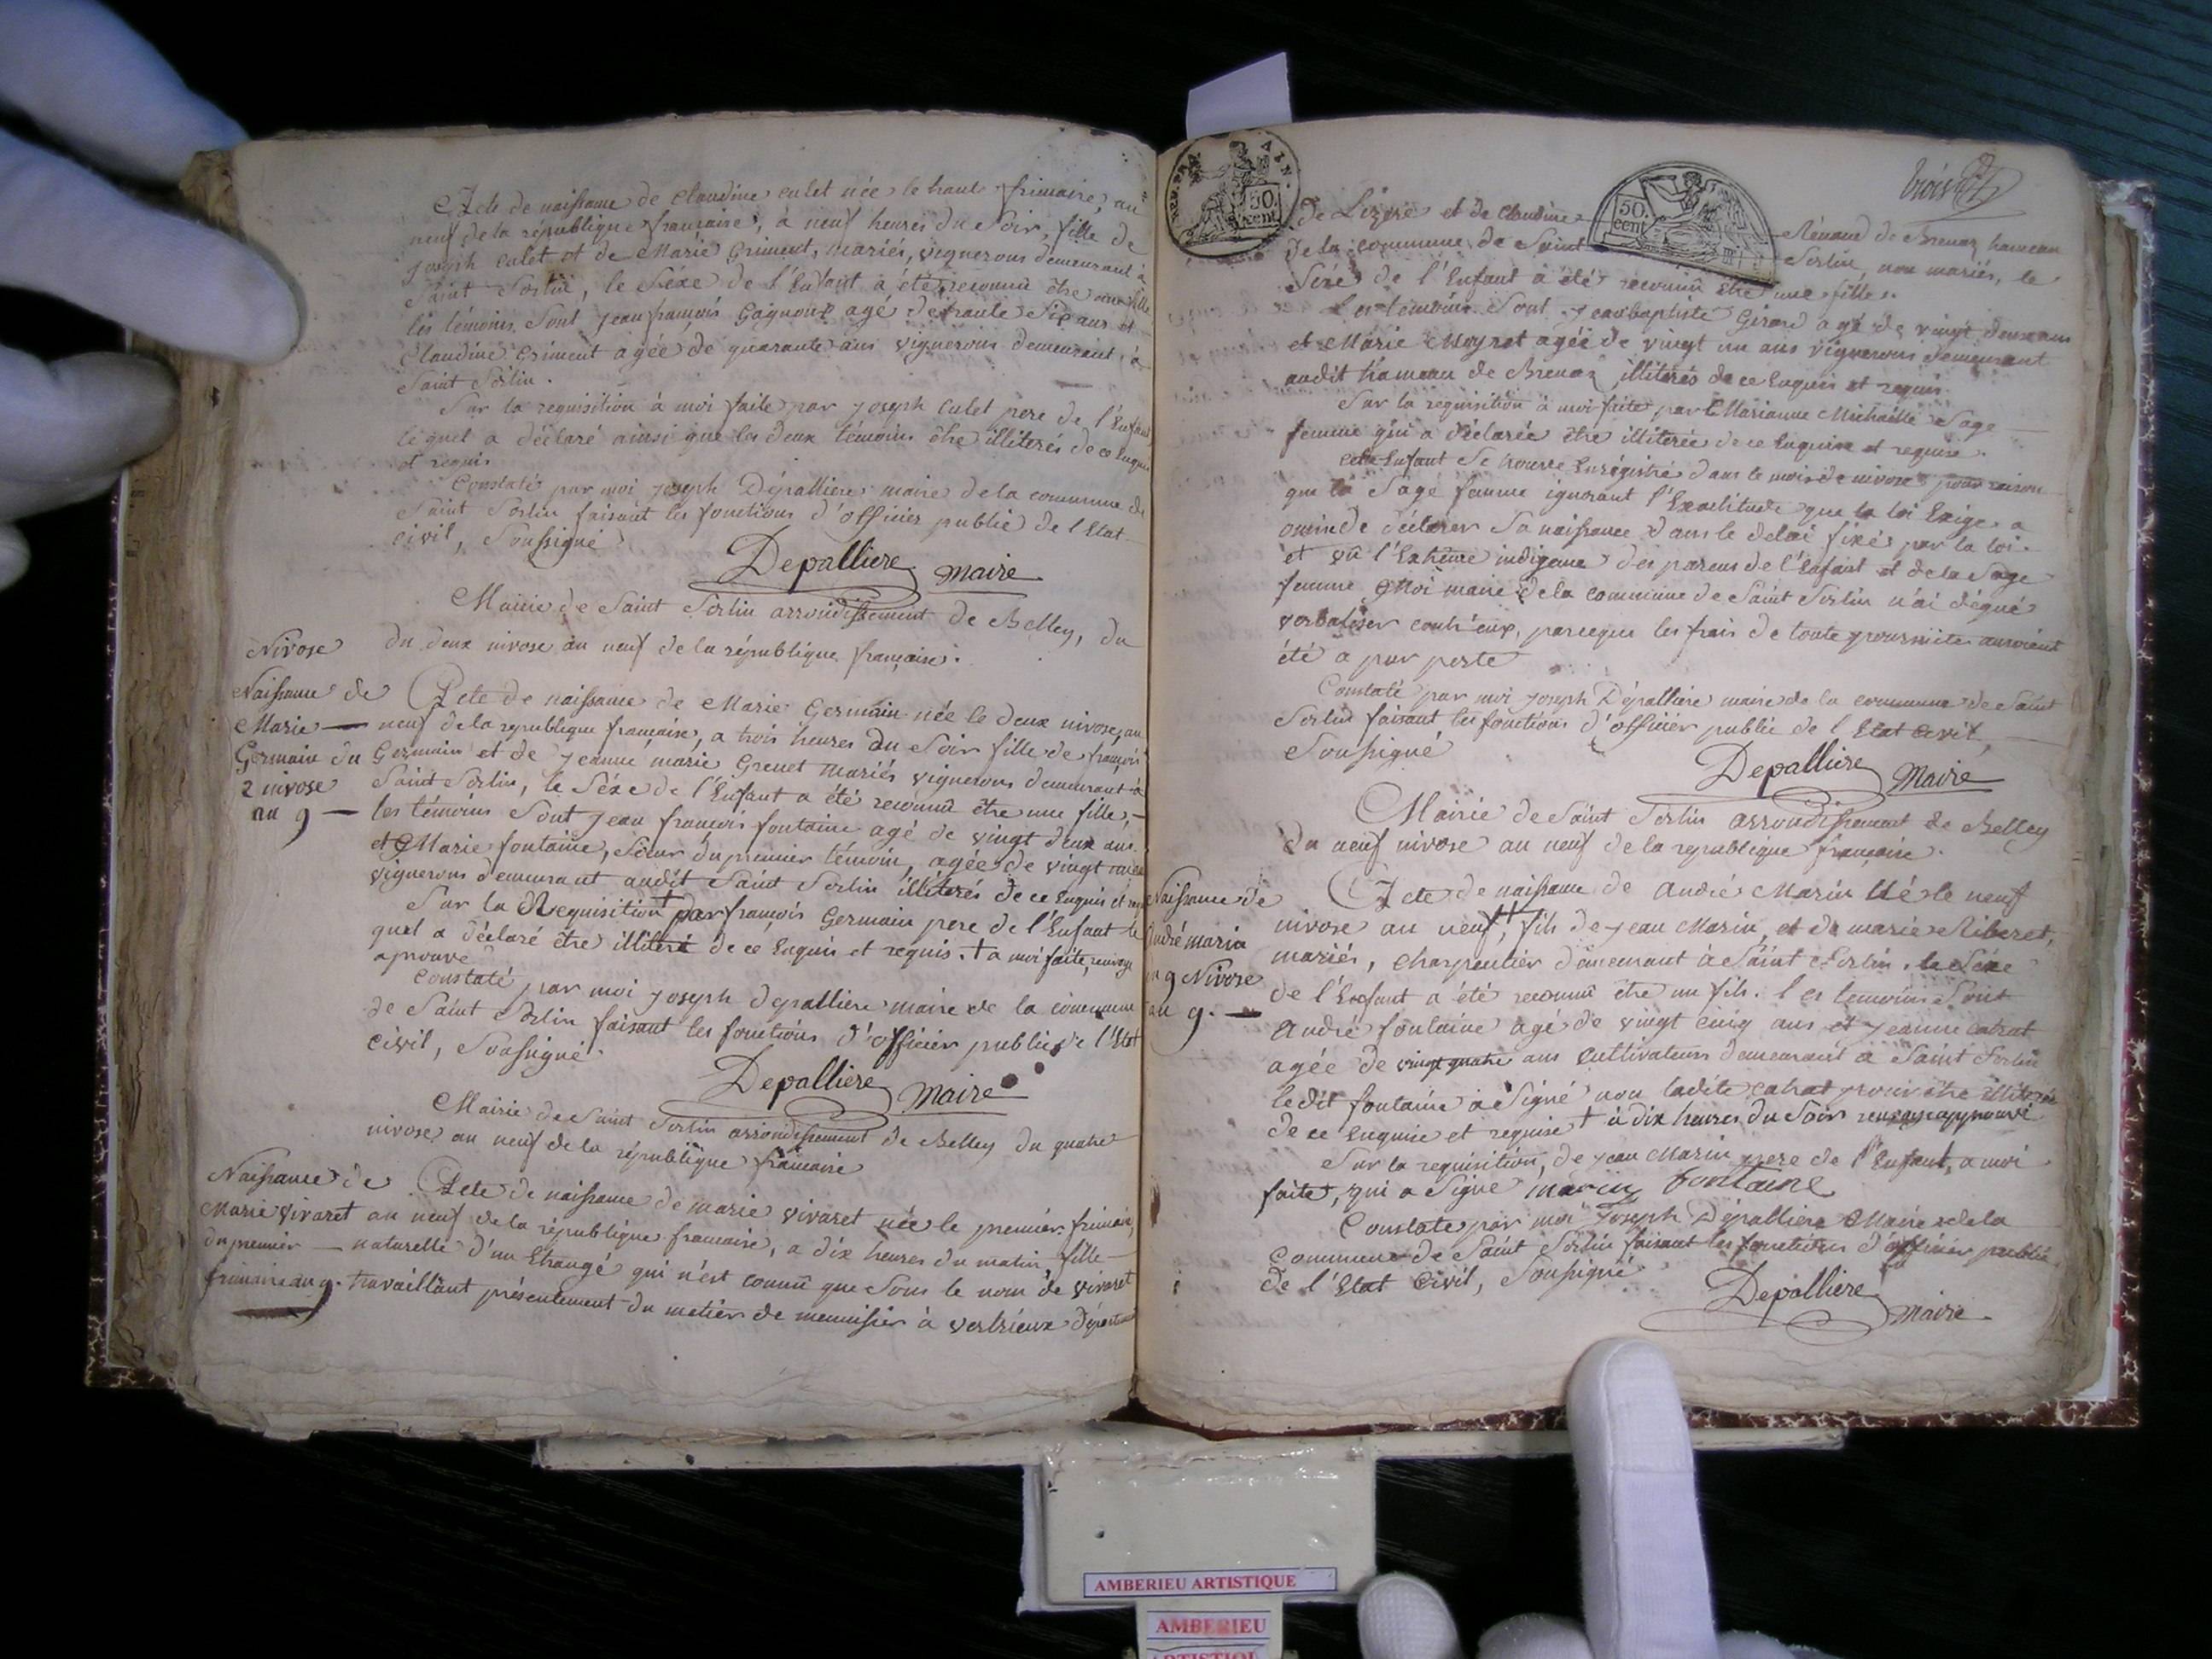 Acte de naissance de Claudine culet née le trente frimaire, an
neuf de la republique française, a neuf heures du Soir, fille de
joseph culet et de Marie Griment, mariés, vignerons demeurant à
Saint Sorlin, le Séxe de l'Enfant a été reconnu être une fille
les témoins Sont jean françois Gagnoux agé de trante Six ans et
Claudine Griment agée de quarante ans vignerons demeurant à
Saint Sorlin.
Sur la requisition à moi faite par joseph Culet pere de l'Enfant
lequel a déclaré ainsi que les deux témoins être illiterés de ce Enquis
et requis
Constaté par moi joseph Dépalliere maire de la commune de
Saint Sorlin faisant les fonctions d'officier public de l'Etat
civil, Soussigné
Depalliere maire
Mairie de Saint Sorlin arrondissement de Belley, du
Nivose
du deux nivose an neuf de la république française.
Naissance de
Marie
Germain du
2 nivose
an 9
Acte de naissance de Marie Germain née le deux nivose, an
neuf de la republique française, a trois heures du Soir fille de françois
Germain et de jeanne marie Grenet mariés vignerons demeurant à
Saint Sorlin, le Séxe de l'Enfant a été reconnu être une fille,
les témoins Sont jean françois fontaine agé de vingt deux ans
et Marie fontaine, Sœur du premier témoin, agée de vingt
vignerons demeurant audit Saint Sorlin illiterés de ce Enquis et
Sur la Requisition + par françois Germain pere de l'Enfant le
quel a déclaré être illiteré de ce Enquis et requis. + a moi faite, renvoye
aprouvé
Constaté par moi joseph depalliere maire de la commune
de Saint Sorlin faisant les fonctions d'officier public de l'Etat
civil, Soussigné.
Depalliere maire
Mairie de Saint Sorlin arrondissement de Belley du quatre
nivose an neuf de la république francaise
Naissance de
Marie Vivaret
du premier
frimaire an 9.
Acte de naissance de marie vivaret née le premier frimaire,
an neuf de la république francaise, a dix heures du matin, fille
naturelle d'un Etrangé qui n'est connu que Sous le nom de vivaret
travaillant présentement du metier de menuisier à vertrieux départem
trois
50. cent
50. cent
de Lizere et de Claudine Renaud de Brenaz hameau
de la commune de Saint Sorlin, non mariés, le
Séxe de l'Enfant a été reconnu être une fille.
Les témoins Sont jean baptiste Gerard agé de vingt deux ans
et Marie Moyret agée de vingt un ans vignerons demeurant
audit hameau de Brenaz illiterés de ce Enquis et requis
Sur la requisition à moi faite par Marianne Michaille Sage
femme qui a déclarée être illiterée de ce Enquise et requise.
cette Enfant Se trouve Enrégistré dans le mois de nivose pour raison
que la Sage femme ignorant l'Exactitude que la loi Exige a
omis de déclarer Sa naissance dans le delai fixé par la loi.
et vû l'Extrême indigence des parens de l'Enfant et de la Sage
femme, Moi maire de la commune de Saint Sorlin n'ai
verbaliser contr'eux, parceque les frais de toute poursuite auroient
été a pur perte
Constaté par moi joseph Dépalliere maire de la commune de Saint
Sorlin faisant les fonctions d'officier public de l'Etat civil,
Soussigné
Depalliere Maire
Mairie de Saint Sorlin arrondissement de Belley
du neuf nivose an neuf de la republique française.
Naissance de
André marin
du 9 Nivose
an 9.
Acte de naissance de André Marin Né le neuf
nivose an neuf, + fils de jean Marin, et de marie Riberet,
mariés, charpentier demeurant à Saint Sorlin. le Séxe
de l'Enfant a été reconnu être un fils. les temoins Sont
André fontaine agé de vingt cinq ans et jeanne catrat
agée de vingt quatre ans cultivateurs demeurant a Saint Sorlin
ledit fontaine a Signé non ladite catrat pour être illiterée
de ce Enquise et requise + à dix heures du Soir renvoye approuvé
Sur la requisition, de jean Marin pere de l'Enfant, a moi
faite, qui a Signé marin fontaine
Constaté par moi joseph Dépalliere Maire de la
Commune de Saint Sorlin faisant les fonctions d'officier public
de l'Etat civil, Soussigné
Depalliere
maire
AMBERIEU ARTISTIQUE
AMBERIEU
ARTISTIQUE